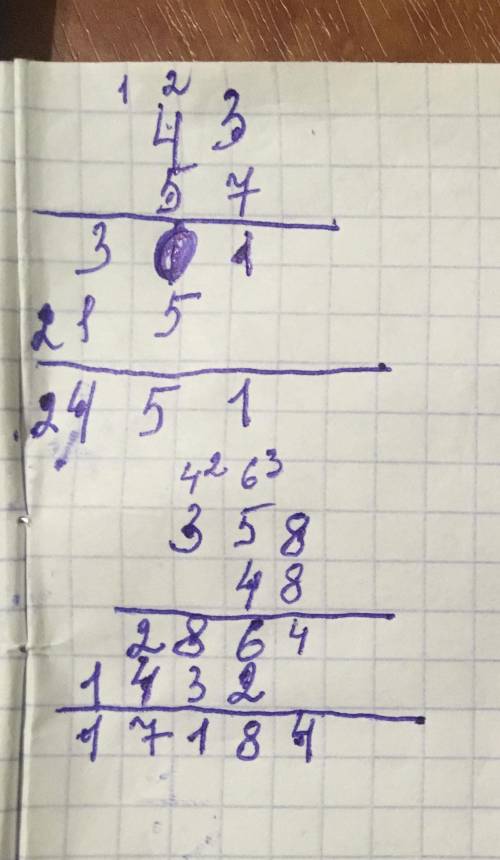 1 2
4 3
5 7
3 0 1
21 5
24 5 1
4 2 6 3
3 5 8
4 8
2 8 6 4
1 4 3 2
1 7 1 8 4